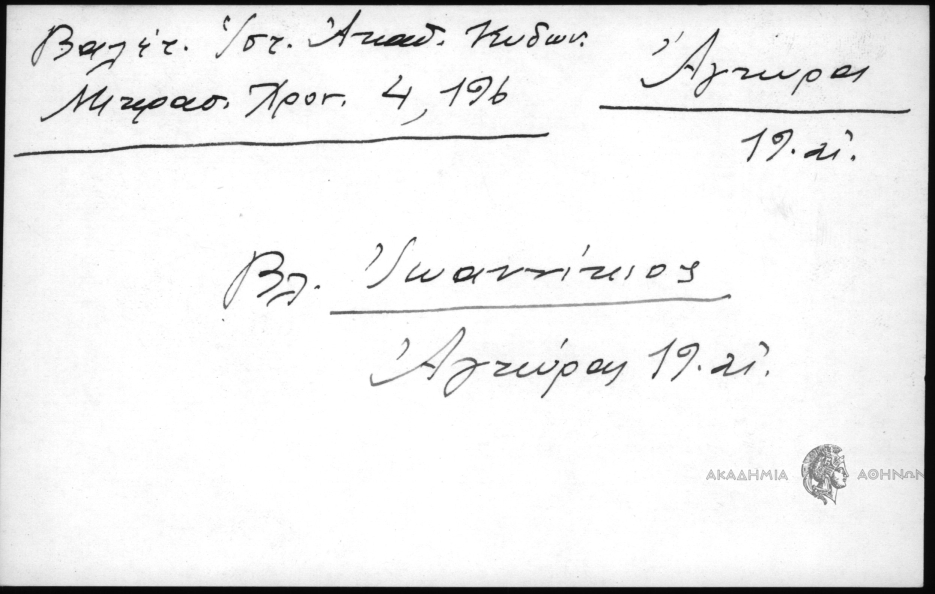 Βαλέτ. Ἱστ. Ἀκαδ. Κυδων.
Μικρασ. Χρον. 4, 196
Ἀγκύρας
19. αἰ.
Βλ. Ἰωαννίκιος
Ἀγκύρας 19. αἰ.
ΑΚΑΔΗΜΙΑ ΑΘΗΝΩΝ